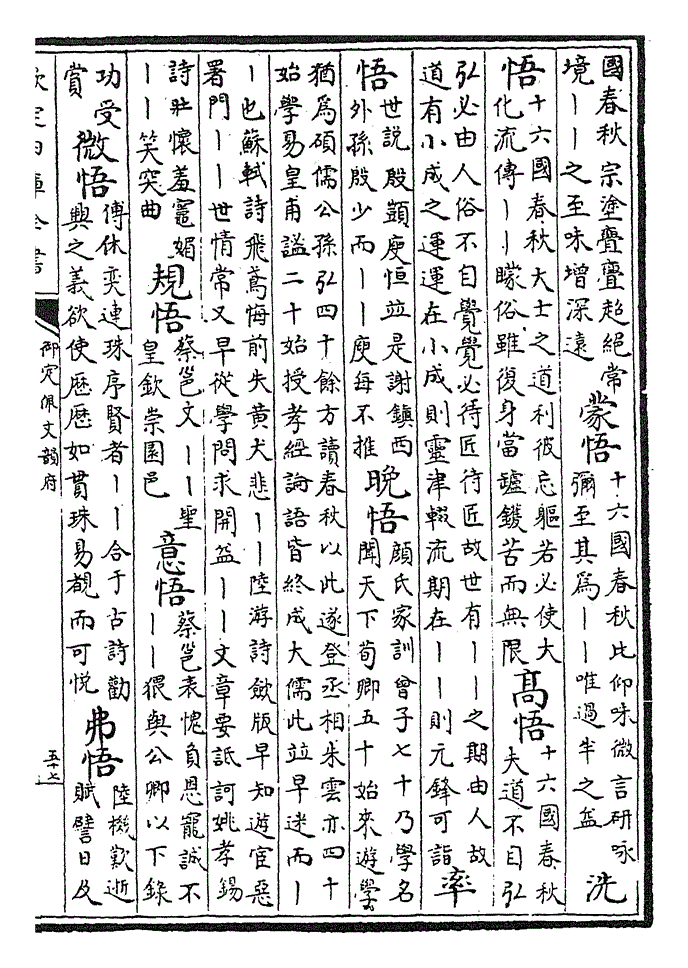 國春秋宗塗亹亹超絶常
境——之至味增深遠
蒙悟
十六國春秋比仰味微言研咏
彌至其為——唯過半之益
洗
悟
十六國春秋大士之道利彼忘軀若必使大
化流傳——矇俗雖復身當鑪鑊苦而無限
高悟
十六國春秋
夫道不自弘
弘必由人俗不自覺覺必待匠待匠故世有——之期由人故
道有小成之運運在小成則靈津輟流期在——則元鋒可詣
率
悟
世説殷顗庾恒並是謝鎮西
外孫殷少而——庾每不推
晚悟
顔氏家訓曾子七十乃學名
聞天下荀卿五十始來遊學
猶為碩儒公孫弘四十餘方讀春秋以此遂登丞相朱雲亦四十
始學易皇甫謐二十始授孝經論語皆終成大儒此並早迷而—
—也蘇軾詩飛鳶悔前失黄犬悲——陸游詩歛版早知遊宦惡
署門——世情常又早從學問求開益——文章要詆訶姚孝錫
詩壯懷羞竈媚
——笑突曲
規悟
蔡邕文——聖
皇欽崇園邑
意悟
蔡邕表愧負恩寵誠不
——猥與公卿以下錄
功受
賞
微悟
傅休奕連珠序賢者——合于古詩勸
興之義欲使歷歷如貫珠易覩而可悦
弗悟
陸機歎逝
賦譬日及
欽定四庫全書
御定佩文韻府
五十七